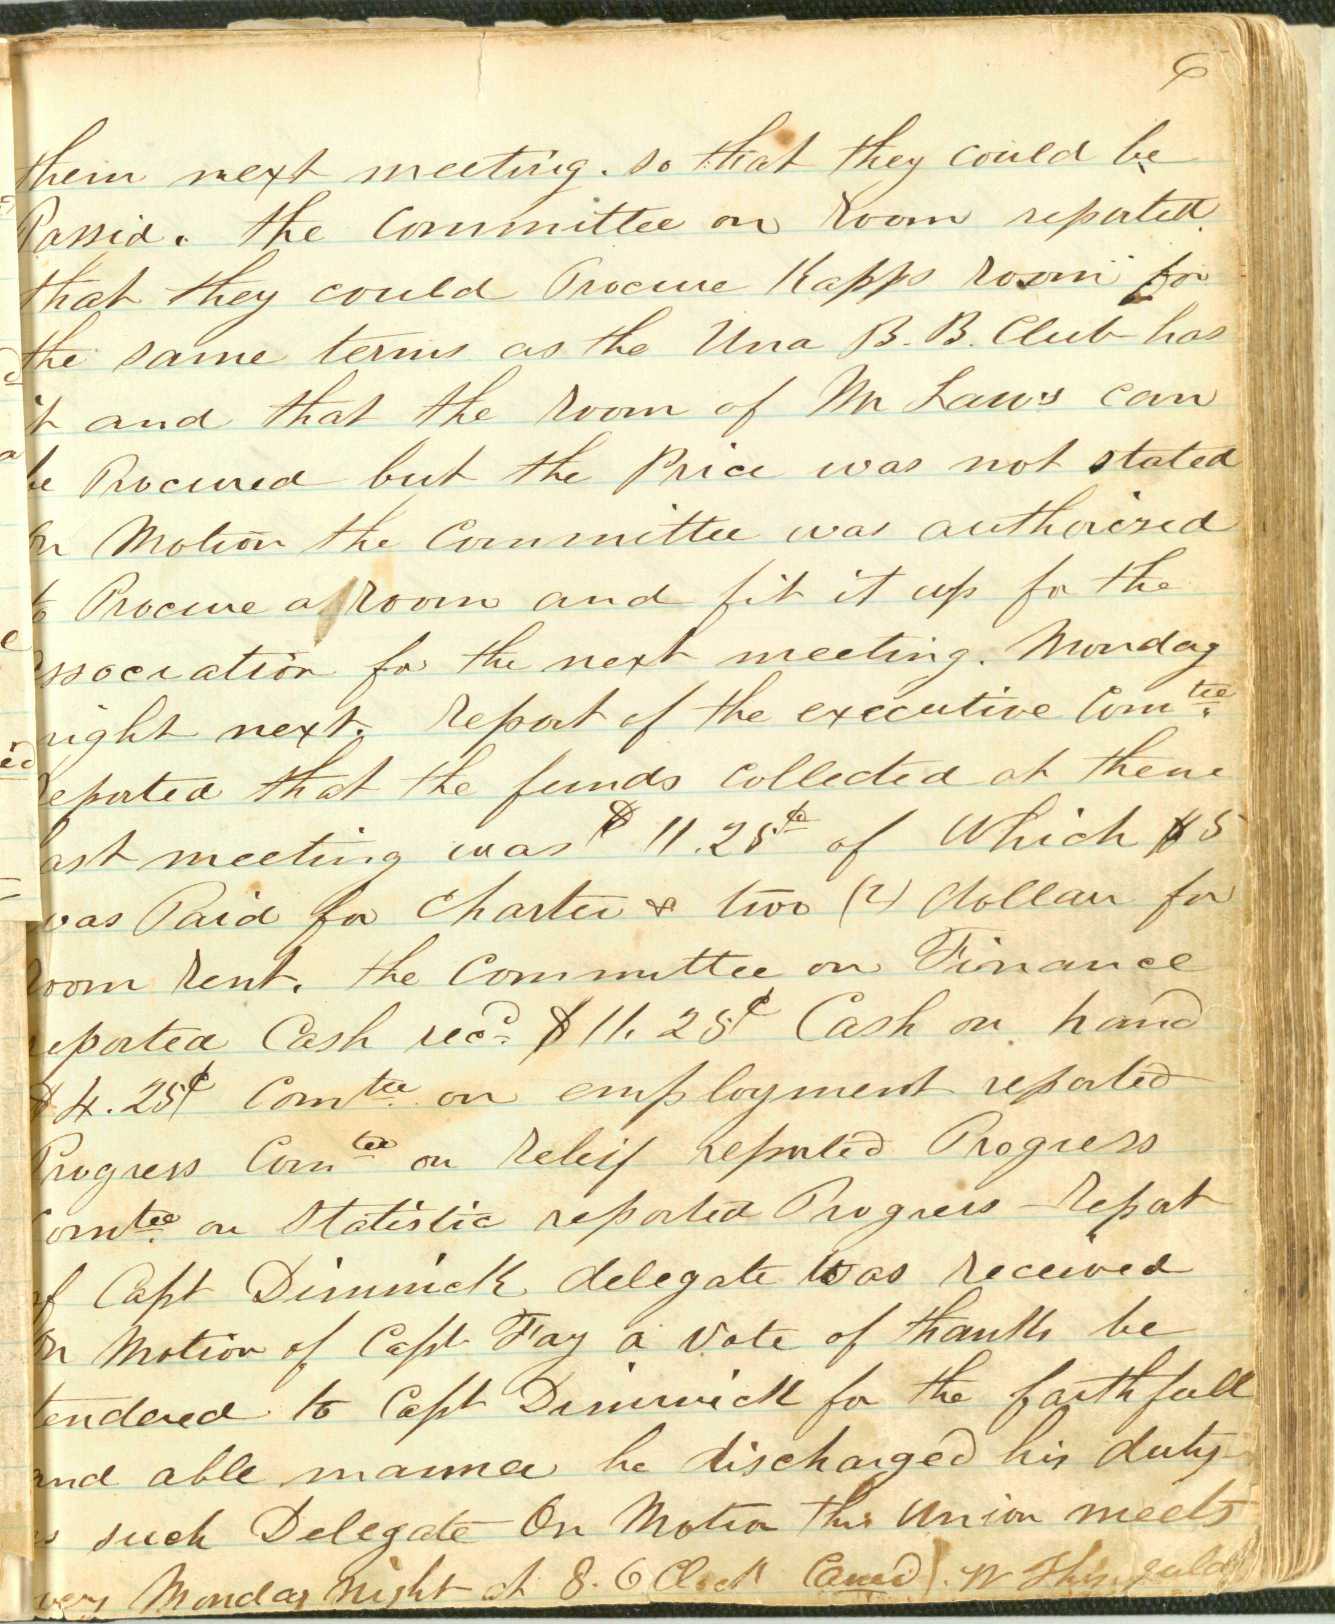 6
them next meeting. so that they could be
Passid. the Committee on room reported
that they could Procure Kapps room for
the same terms as the Una B. B. Club has
it and that the room of Mr Laws can
be Procured but the Price was not stated
On Motion the Committee was authorized
to Procure a room and fit it up for the
association for the next meeting. Monday
night next. Report of the executive Comtee.
Reported that the funds collected at there
last meeting was $11.25¢ of Which $5
was Paid for Charter & two (2) dollars for
room rent. the Committee on Finance
reported Cash recd. $11.25¢ Cash on hand
$4.25¢ Comtee. on employment reported
Progress Comtee on Releif reported Progress
Comtee. on Statistic reported Progress - Report
of Capt Dimmick delegate was received
On Motion of Capt Fay a Vote of thanks be
tendered to Capt Dimmick for the faithfull
and able manner he discharged his duty
as such Delegate On Motion this Union meets
every Monday Night at 8. O Clock Carried